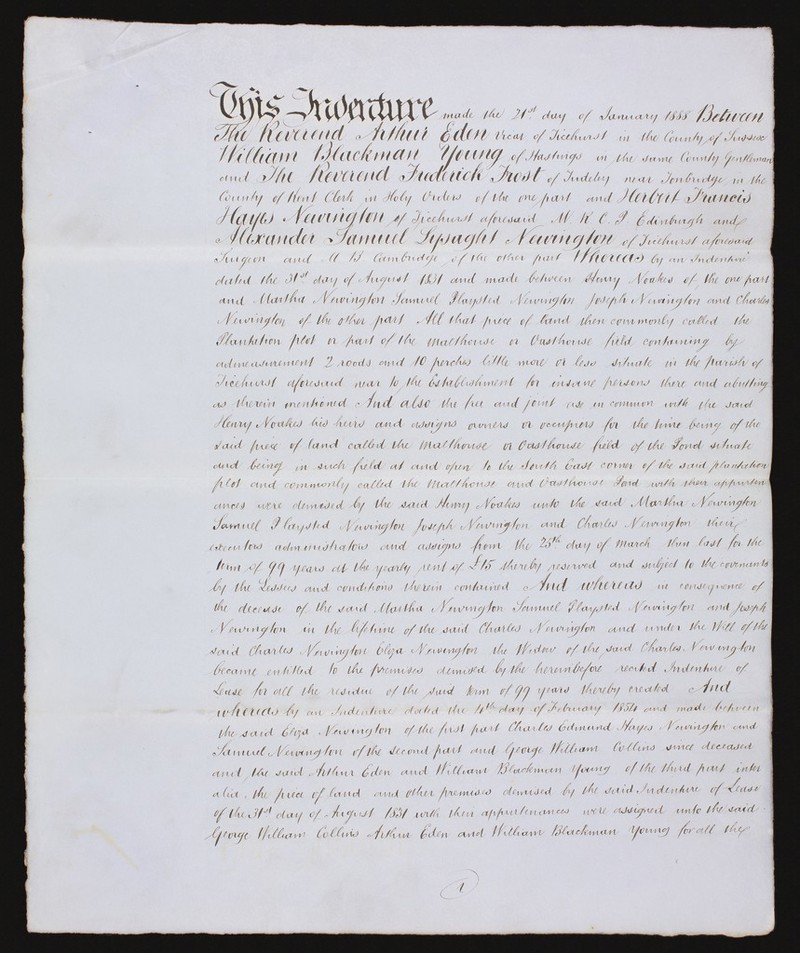 This Indenture made the 21st day of January 1888 Between
The Reverend Arthur Eden Vicar of Ticehurst in the County of Sussex
William Blackman Young of Hastings in the same County Gentleman
and The Reverend Frederick Frost of Tudeley near Tonbridge in the
County of Kent Clerk in Holy Orders of the one part and Herbert Francis
Hayes Newington of Ticehurst aforesaid M R C P Edinburgh and
Alexander Samuel Lysaght Newington of Ticehurst aforesaid
Surgeon and M B Cambridge of the other part Whereas by an Indenture
dated the 31st day of August 1831 and made between Henry Noakes of the one part
and Martha Newington Samuel Playsted Newington Joseph Newington and Charles
Newington of the other part All that piece of land then commonly called the
Plantation plot or part of the Malthouse or Oasthouse field containing by
admeasurement 2 roods and 10 perches little more or less situate in the parish of
Ticehurst aforesaid near to the Establishment for insane persons there and abutting
as therein mentioned And also the free and joint use in common with the said
Henry Noakes his heirs and assigns owners or occupiers for the time being of the
said piece of land called the Malthouse or Oasthouse field of the Pond situate
and being in such field at and open to the South East corner of the said plantation
plot and commonly called the Malthouse and Oasthouse Pond with their appurten
ances were demised by the said Henry Noakes unto the said Martha Newington
Samuel Playsted Newington Joseph Newington and Charles Newington their
executors administrators and assigns from the 25th day of March then last for the
term of 99 years at the yearly rent of £15 thereby reserved and subject to the covenants
by the Lessees and conditions therein contained And whereas in consequence of
the decease of the said Martha Newington Samuel Playsted Newington and Joseph
Newington in the lifetime of the said Charles Newington and under the Will of the
said Charles Newington Eliza Newington the Widow of the said Charles Newington
became entitled to the premises demised by the hereinbefore recited Indenture of
Lease for all the residue of the said term of 99 years thereby created And
whereas by an Indenture dated the day of February and made between
the said Eliza Newington of the first part Charles Edmund Hayes Newington and
Samuel Newington of the second part and George William Collins since deceased
and the said Arthur Eden and William Blackman Young of the third part inter
alia the piece of land and other premises demised by the said Indenture of Lease
of the 31st day of August 1831 with their appurtenances were assigned unto the said
George William Collins Arthur Eden and William Blackman Young for all the
1